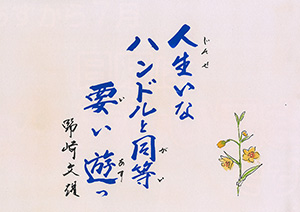 人生いな
ハンドルと同等
要い遊っ
じんせ
がい
い
あす
野崎文